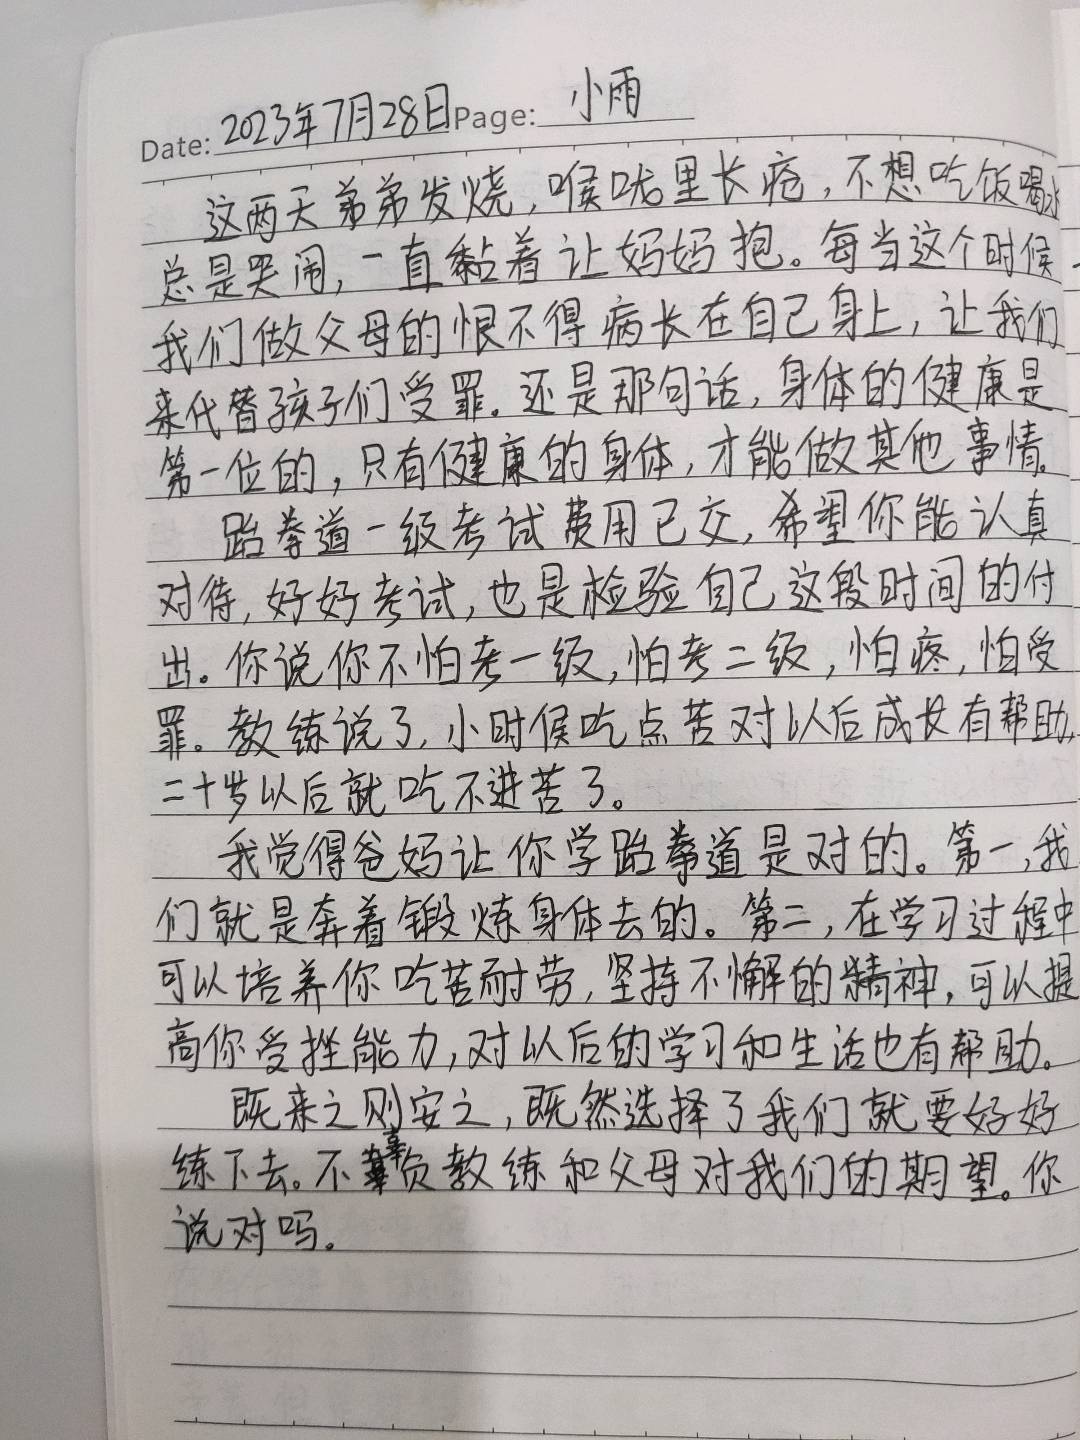 Date: 2023年7月28日 Page: 小雨
这两天弟弟发烧，喉咙里长疮，不想吃饭喝水
总是哭闹，一直黏着让妈妈抱。每当这个时候
我们做父母的恨不得病长在自己身上，让我们
来代替孩子们受罪。还是那句话，身体的健康是
第一位的，只有健康的身体，才能做其他事情。
跆拳道一级考试费用已交，希望你能认真
对待，好好考试，也是检验自己这段时间的付
出。你说你不怕考一级，怕考二级，怕疼，怕受
罪。教练说了，小时候吃点苦对以后成长有帮助，
二十岁以后就吃不进苦了。
我觉得爸妈让你学跆拳道是对的。第一，我
们就是奔着锻炼身体去的。第二，在学习过程中
可以培养你吃苦耐劳，坚持不懈的精神，可以提
高你受挫能力，对以后的学习和生活也有帮助。
既来之则安之，既然选择了我们就要好好
练下去。不辜负教练和父母对我们的期望。你
说对吗。